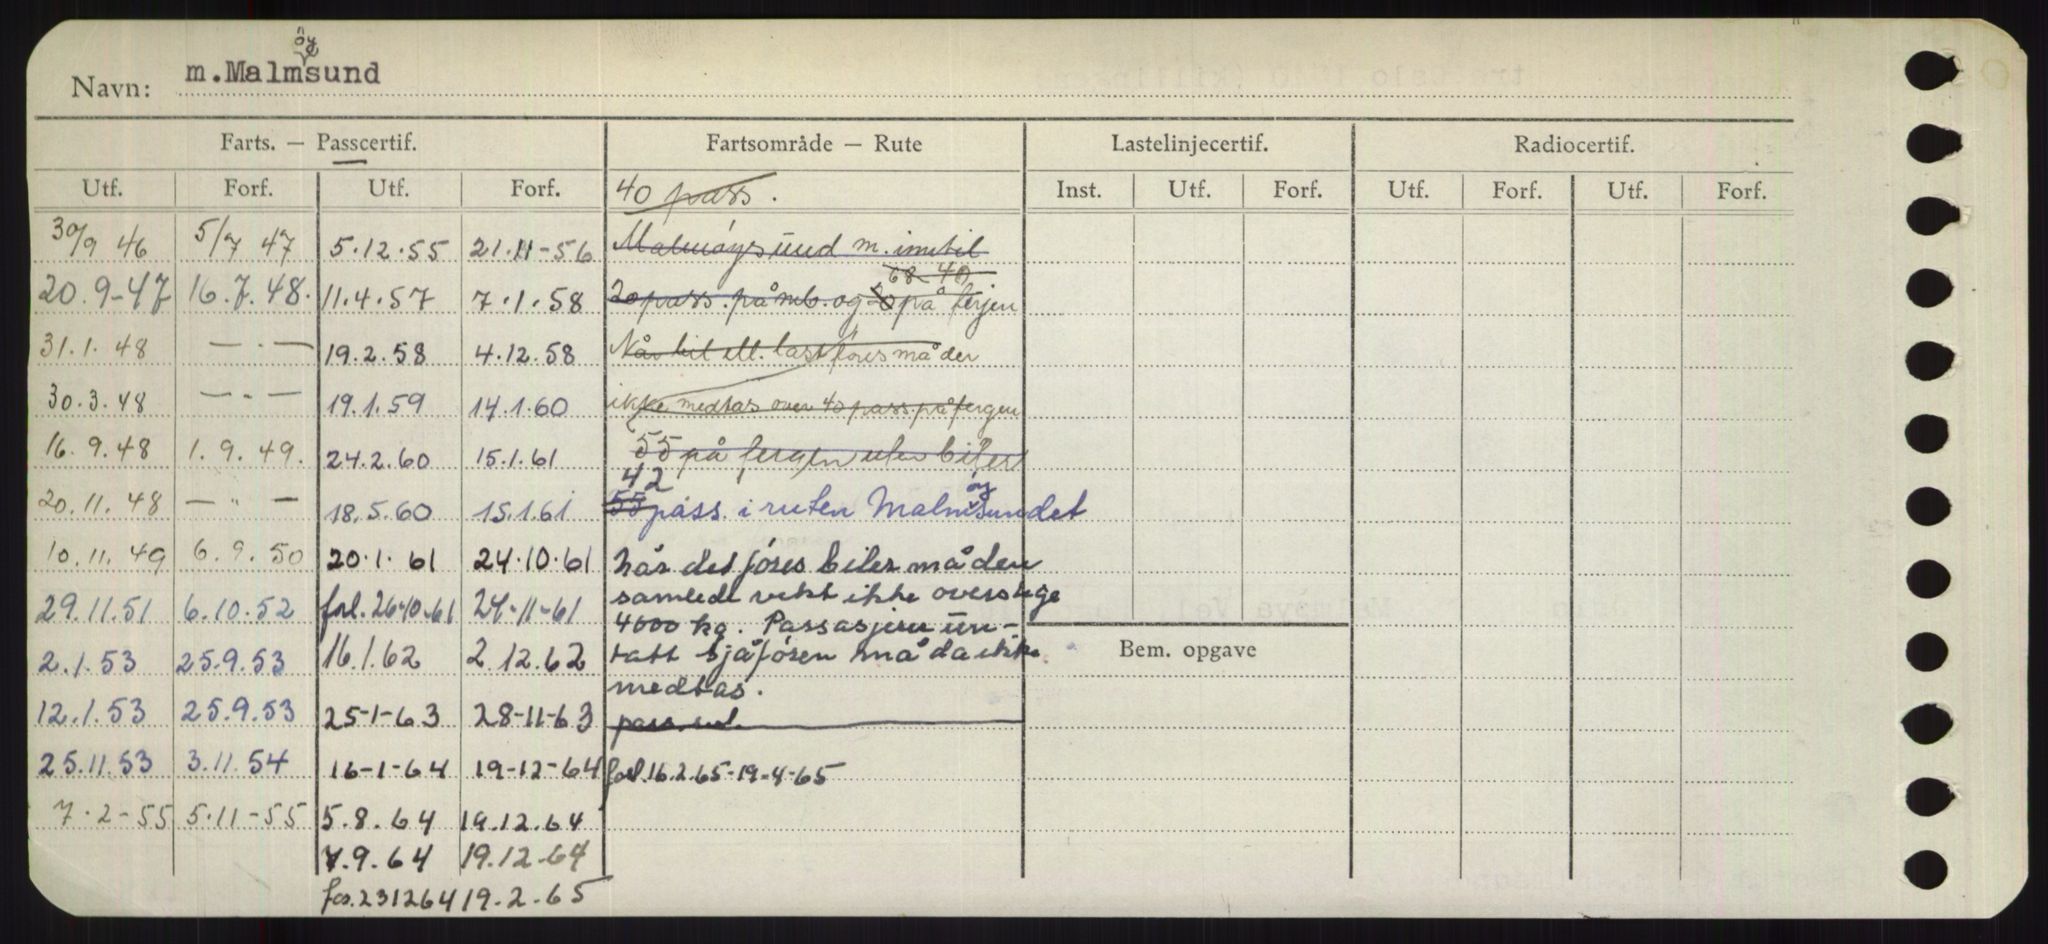 Navn: m.Malmöysund
Farts. — Passcertif. Fartsområde — Rute Lastelinjecertif. Radiocertif.
Utf. Forf. Utf. Forf. 40 pass. Inst. Utf. Forf. Utf. Forf. Utf. Forf.
30/9 46 5/7 47 5.12.55 21.11-56 Malmöysund m. inntil
68 40
20.9-47 16.7.48. 11.4.57 7.1.58 20 pass. på mb. og på ferjen
31.1.48 — . — 19.2.58 4.12.58 Når bil ell. last föres må der
30.3.48 — . — 19.1.59 14.1.60 ikke medtas over 40 pass. på fergen
16.9.48 1.9.49. 24.2.60 15.1.61 55 på fergen uten biler
42
20.11.48 — " — 18.5.60 15.1.61 55 pass. i ruten Malmöysundet
10.11.49 6.9.50 20.1.61 24.10.61 når det föres biler må den
29.11.51 6.10.52 forl. 26-10-61 24-11-61 samlede vekt ikke overstige
4000 kg. Passasjerer un-
2.1.53 25.9.53 16.1.62 2.12.62 tatt sjåfören må da ikke
Bem. opgave
medtas.
12.1.53 25.9.53 25-1-63 28-11-63 pass.
25.11.53 3.11.54 16-1-64 19-12-64 forl. 16.2.65-19-4-65
7.2-55 5.11-55 5.8.64 19.12.64
7.9.64 19.12-64
for. 231264 19.2.65